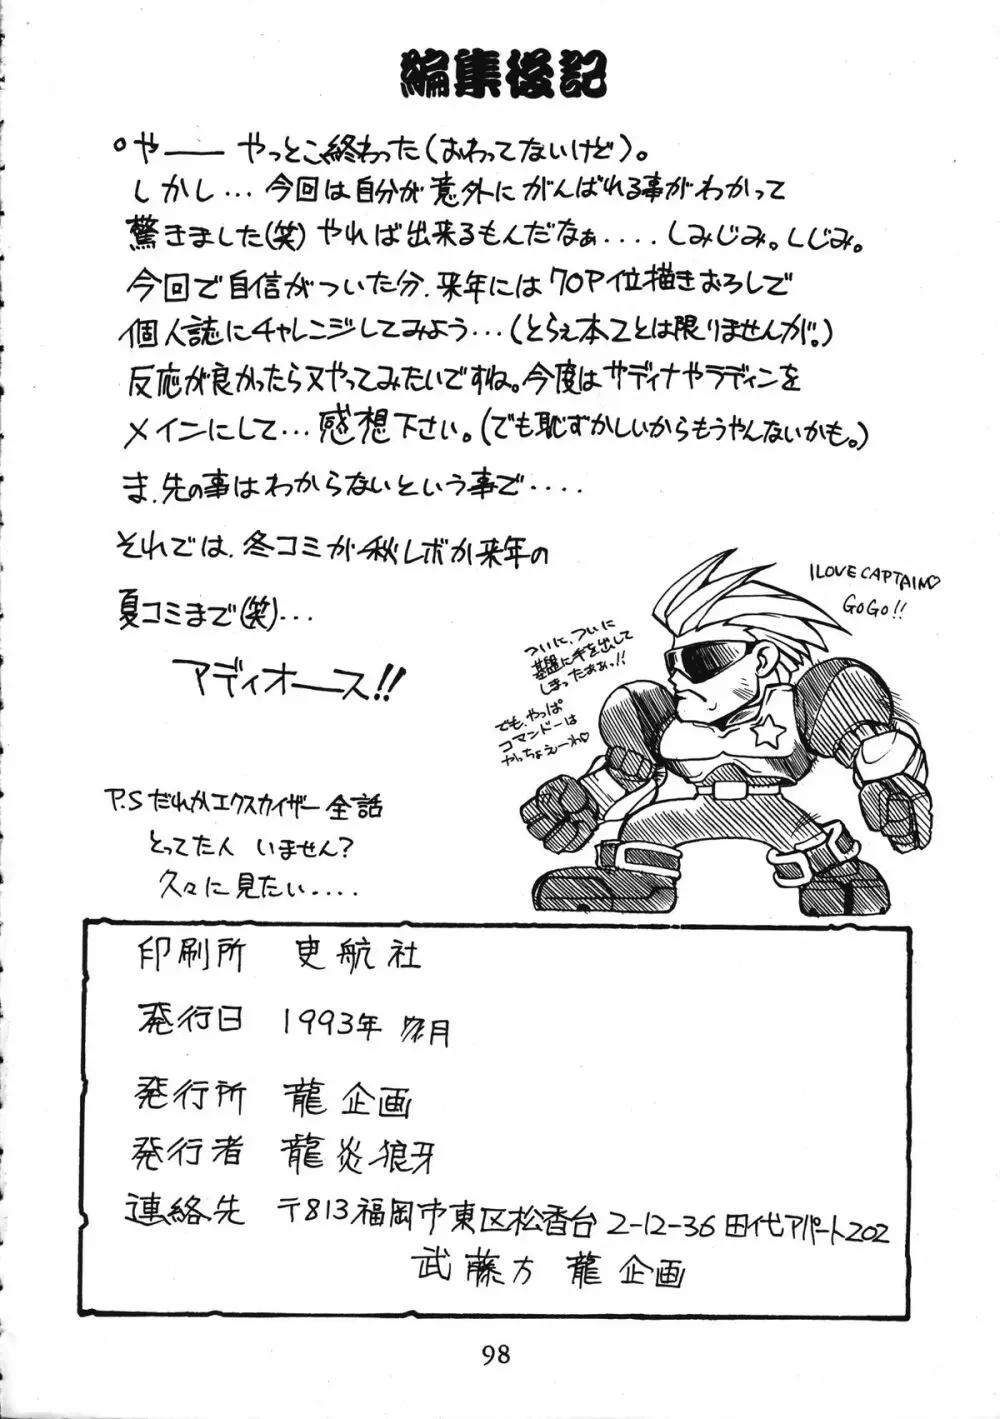 編集後記
○や── やっとこ終わった(おわってないけど)。
しかし…今回は自分が意外にがんばれる事がわかって
驚きました(笑)やれば出来るもんだなぁ....しみじみ。しじみ。
今回で自信がついた分、来年には70P位描きおろしで
個人誌にチャレンジしてみよう…(とらぇ本てとは限りませんが。)
反応が良かったら又やってみたいですね。今度はサディナやラディンを
メインにして…感想下さい。(でも恥ずかしいからもうやんないかも。)
ま、先の事はわからないという事で....
それでは、冬コミか秋レボか来年の
夏コミまで(笑)…
アディオース!!
I LOVE CAPTAIN♡
GoGo!!
ついに、ついに
基盤に手を出して
しまったぁぁっ!!
でも、やっぱ
コマンドーは
かっちょえーわ♡
P.S だれかエクスカイザー全話
とってた人 いません?
久々に見たい....
印刷所 史航社
発行日 1993年 月
発行所 龍企画
発行者 龍炎狼牙
連絡先 〒813福岡市東区松香台2-12-36田代アパート202
武藤方 龍企画
98